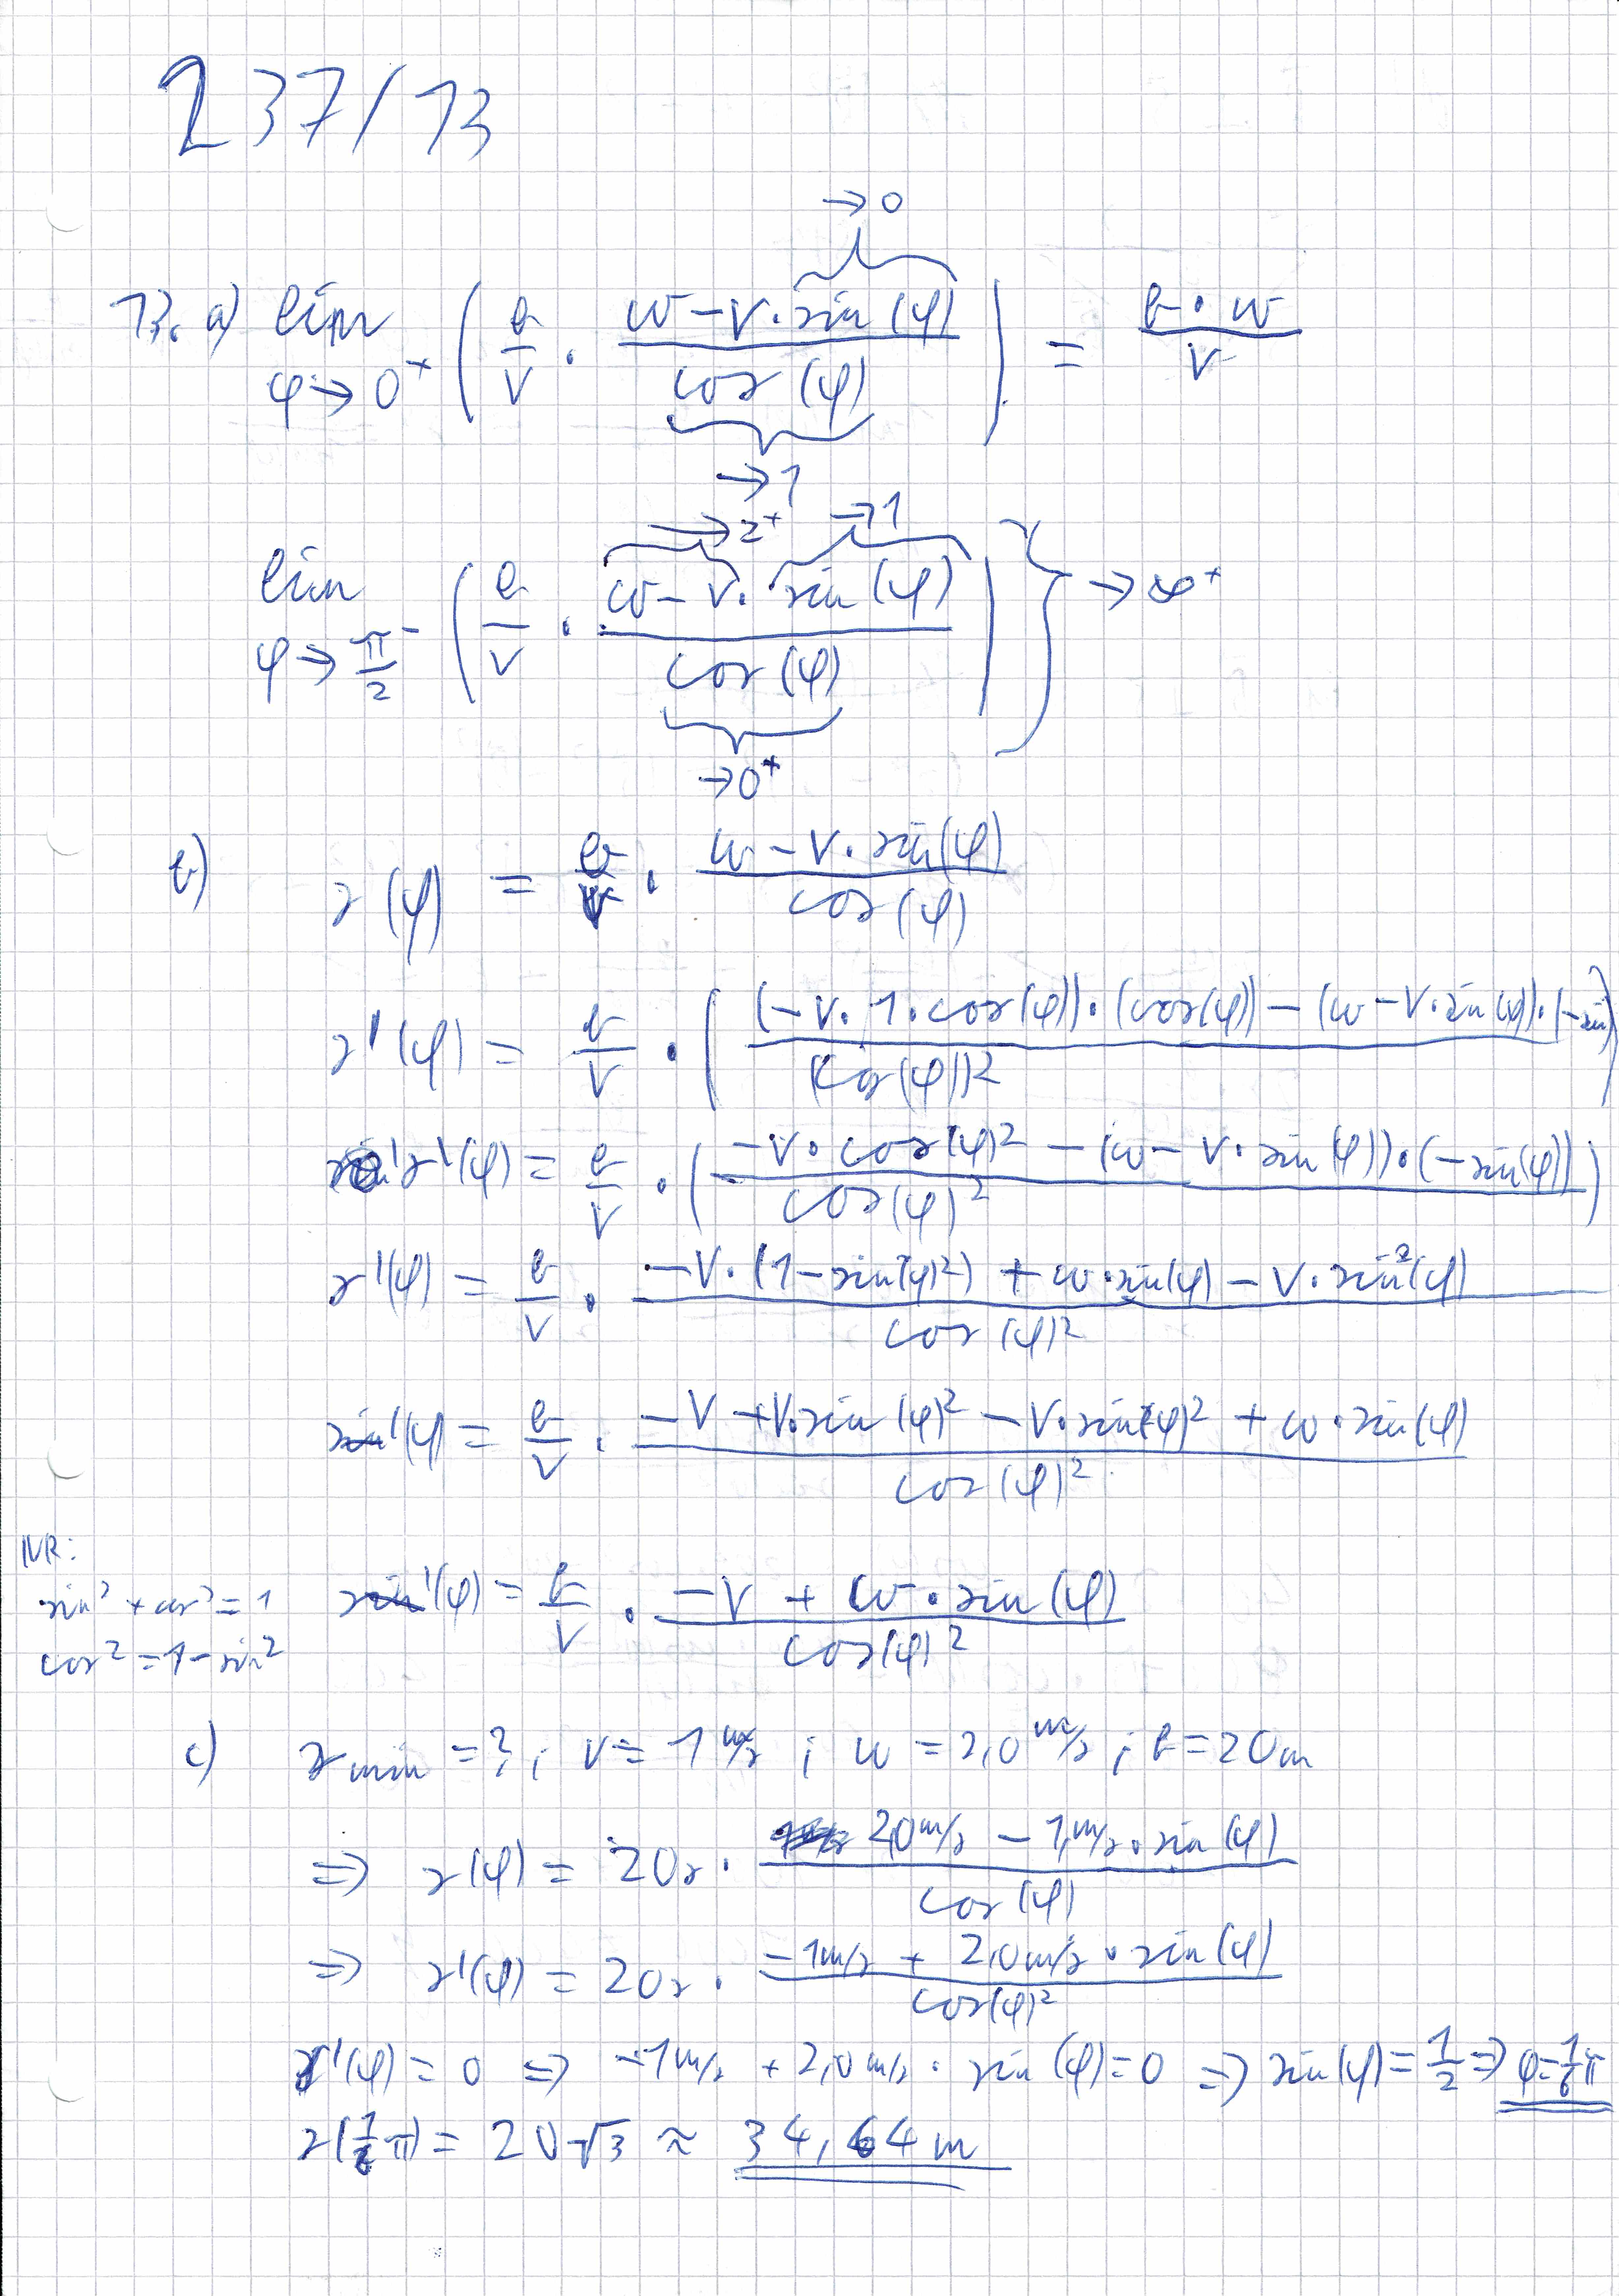 237/13
→0
13. a) lim φ→0⁺ ( b/v · (w − v · sin(φ))/cos(φ) ) = (b · w)/v
→1
→z⁺ →1
lim φ→π/2⁻ ( b/v · (w − v · sin(φ))/cos(φ) ) } → ∞⁺
→0⁺
b) s(φ) = b/v · (w − v · sin(φ))/cos(φ)
s'(φ) = b/v · ( ((−v · 1 · cos(φ)) · (cos(φ)) − (w − v · sin(φ)) · (−sin))/(cos(φ))² )
s'(φ) = b/v · ( (−v · cos(φ)² − (w − v · sin(φ)) · (−sin(φ)))/cos(φ)² )
s'(φ) = b/v · (−v · (1 − sin(φ)²) + w · sin(φ) − v · sin²(φ))/cos(φ)²
s'(φ) = b/v · (−v + v · sin(φ)² − v · sin(φ)² + w · sin(φ))/cos(φ)²
NR:
sin² + cos² = 1
cos² = 1 − sin²
s'(φ) = b/v · (−v + w · sin(φ))/cos(φ)²
c) s min = ? ; v = 1 m/s ; w = 2,0 m/s ; b = 20m
⇒ s(φ) = 20s · (2,0 m/s − 1 m/s · sin(φ))/cos(φ)
⇒ s'(φ) = 20s · (−1m/s + 2,0m/s · sin(φ))/cos(φ)²
s'(φ) = 0 ⇒ −1 m/s + 2,0 m/s · sin(φ) = 0 ⇒ sin(φ) = 1/2 ⇒ φ = 1/6 π
s(1/6 π) = 20√3 ≈ 34,64 m